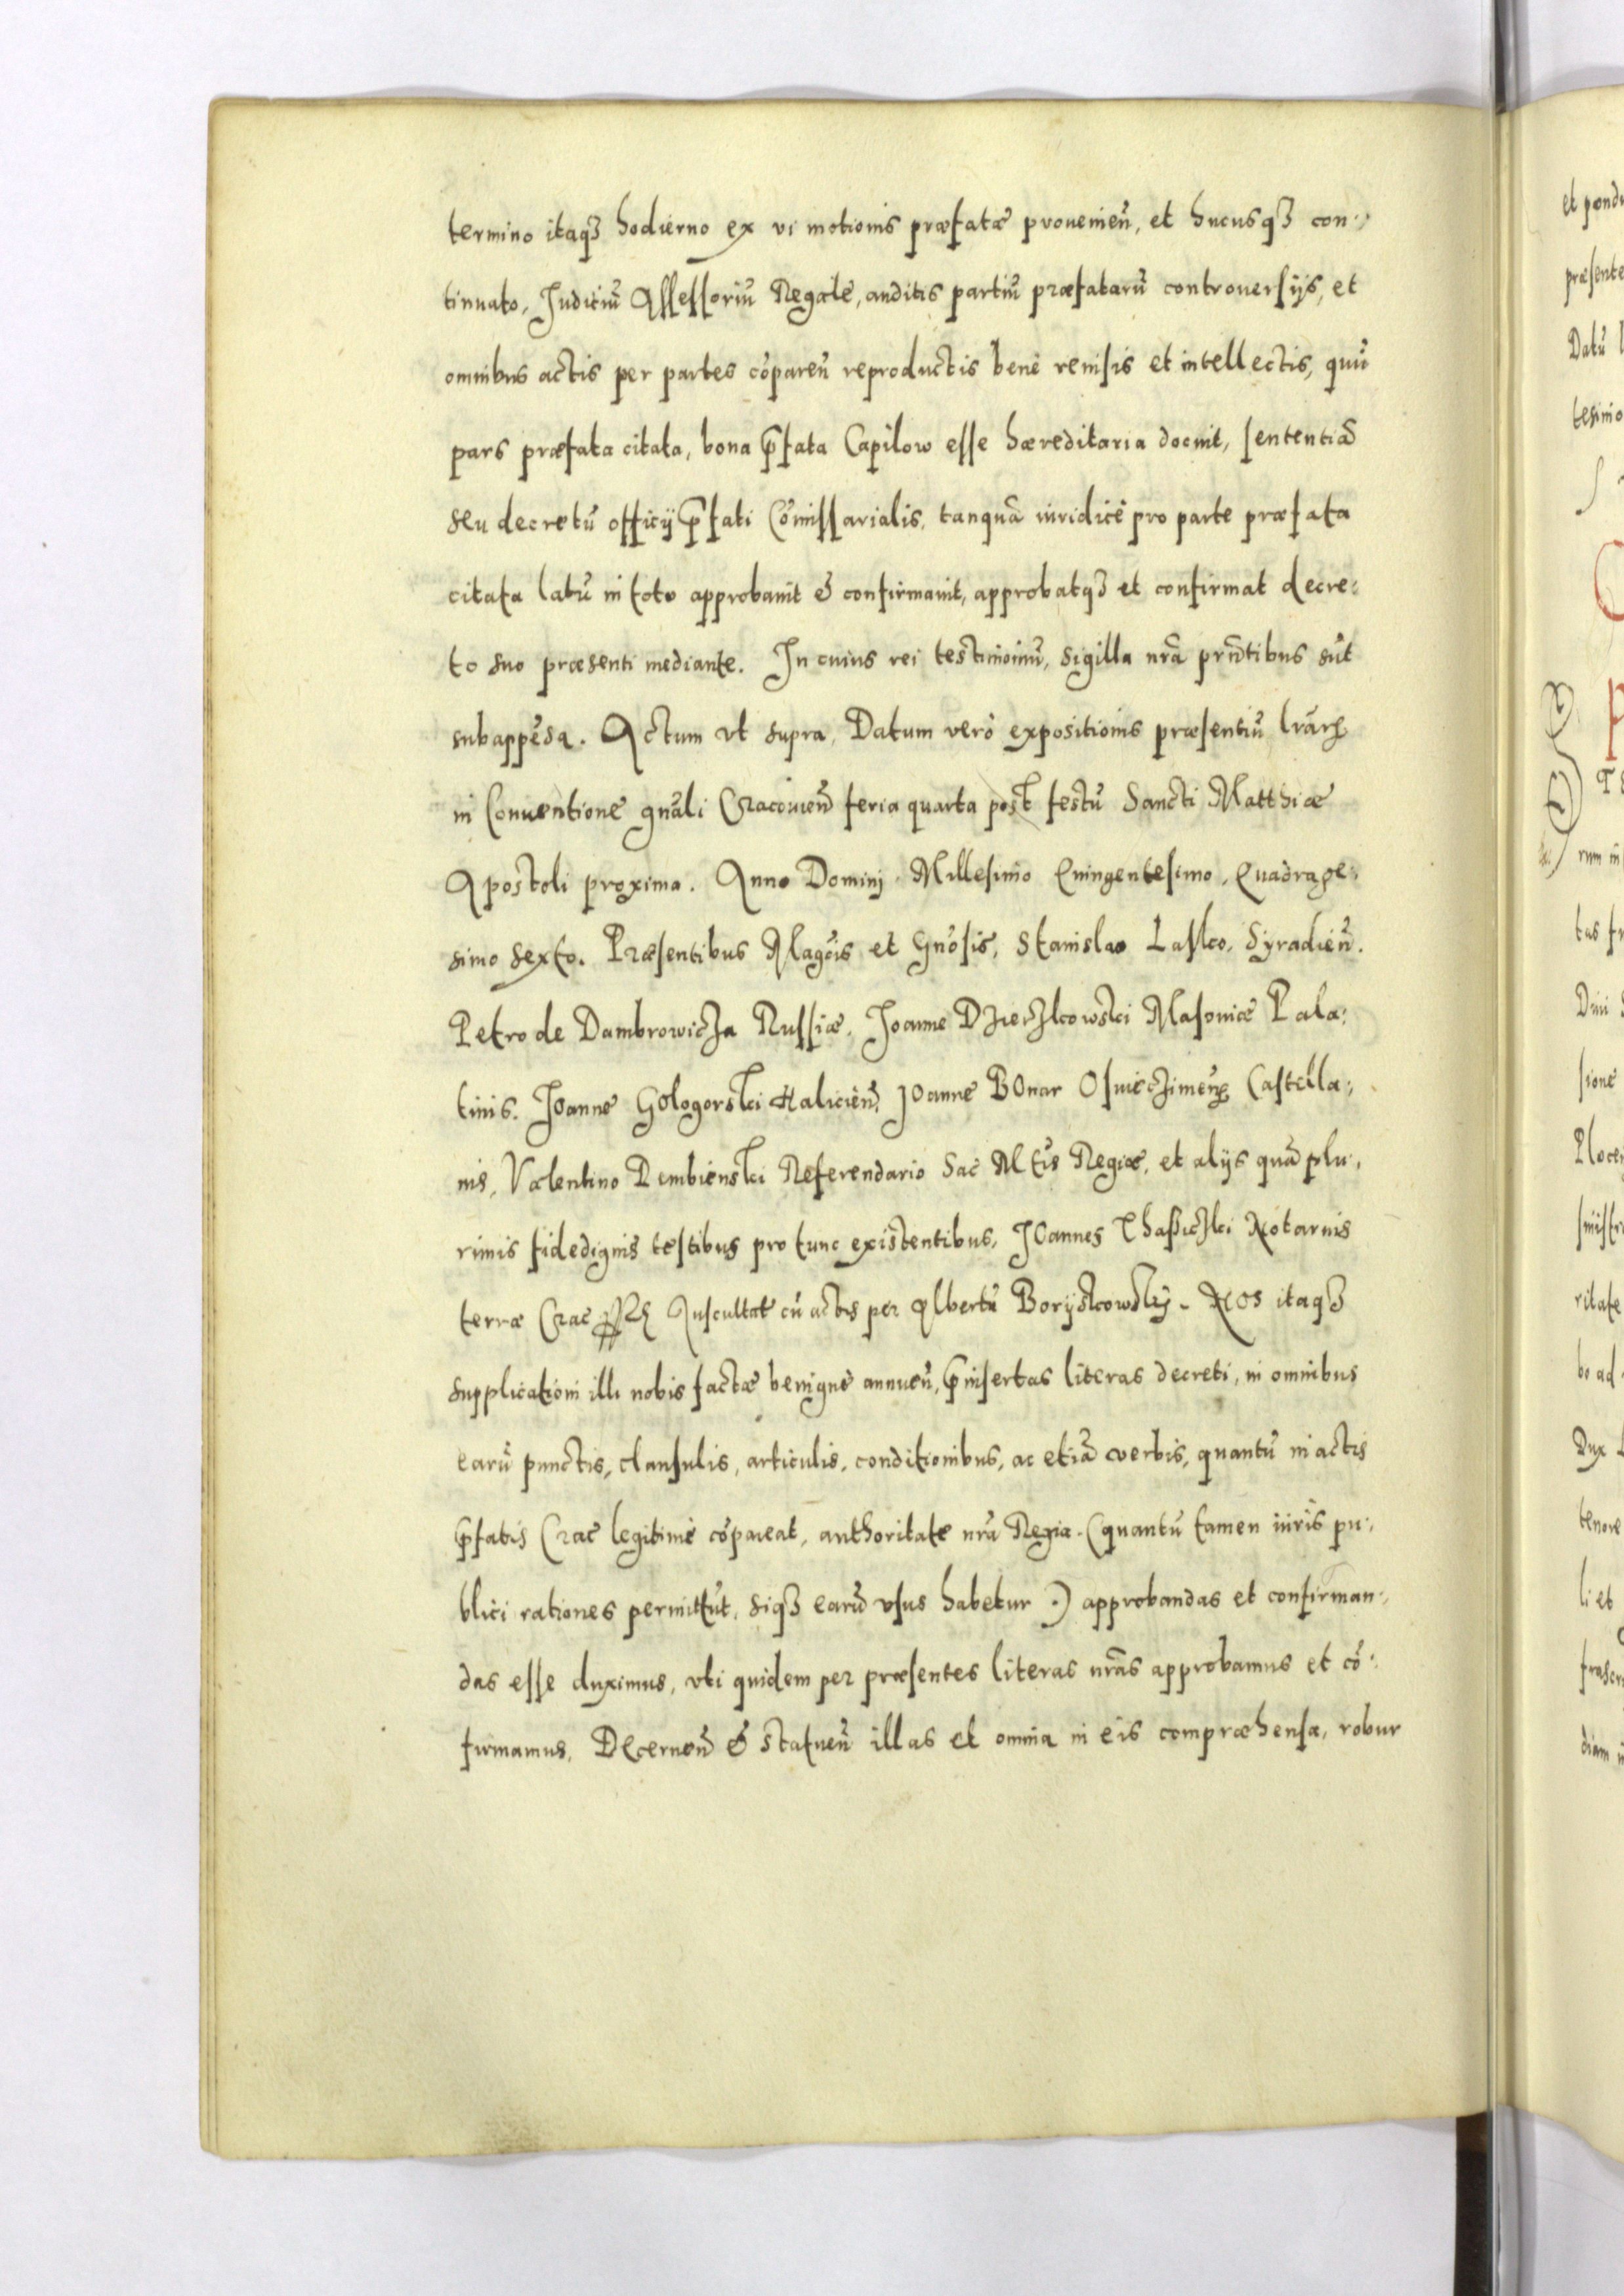 termino itaqꝫ hodierno ex vi motionis præfatæ provenien̄, et hucusqꝫ con⸗
tinuato, Judiciū Assessoriū Regale, auditis partiū præfatarū controversijs, et
omnibus actis per partes cōparen̄ reproductis bene revisis et intellectis, quū
pars præfata citata, bona p̄fata Capilow esse hæreditaria docuit, sententiā
seu decretū officij p̄fati Cōmissarialis, tanquā iuridicè pro parte præfata
citata latū in toto approbavit & confirmavit, approbatqꝫ et confirmat decre⸗
to suo præsenti mediante. In cuius rei testimoniū, sigilla nrā prn̄tibus sūt
subappēsa. Actum vt supra, Datum verò expositionis præsentiū lrāꝝ
in Conventione gnāli Cracovien̄ feria quarta post festū Sancti Matthiæ
Apostoli proxima. Anno Domini Millesimo Quingentesimo, Quadrage⸗
simo sexto. Præsentibus Magcis et Gnōsis, Stanislao Lasko, Syradien̄.
Petro de Dambrowicza Russiæ, Joanne Dzierzkowski Masoviæ Pala⸗
tinis. Joanne Gologorski Halicien̄, Joanne Bonar Osvieczimen̄ Castella⸗
nis, Valentino Dembienski Referendario Sac̄ Mtīs Regiæ, et alijs quā plu⸗
rimis fidedignis testibus pro tunc existentibus, Joannes Notarius
terræ Crac̄ Auscultat̄ cū actis per Albertū Boryskowsky. Nos itaqꝫ
supplicationi illi nobis factæ benigne annuen̄, p̄insertas literas decreti, in omnibus
earū punctis, clausulis, articulis, conditionibus, ac etiā verbis, quantū in actis
p̄fatis Crac̄ legitimè cōpareat, authoritate nrā Regia (quantū tamen iuris pu⸗
blici rationes permittūt, siqꝫ earū vsus habetur) approbandas et confirman⸗
das esse duximus, vti quidem per præsentes literas nrās approbamus et cō⸗
firmamus, Decernen̄ & statuen̄ illas et omnia in eis compræhensa, robur